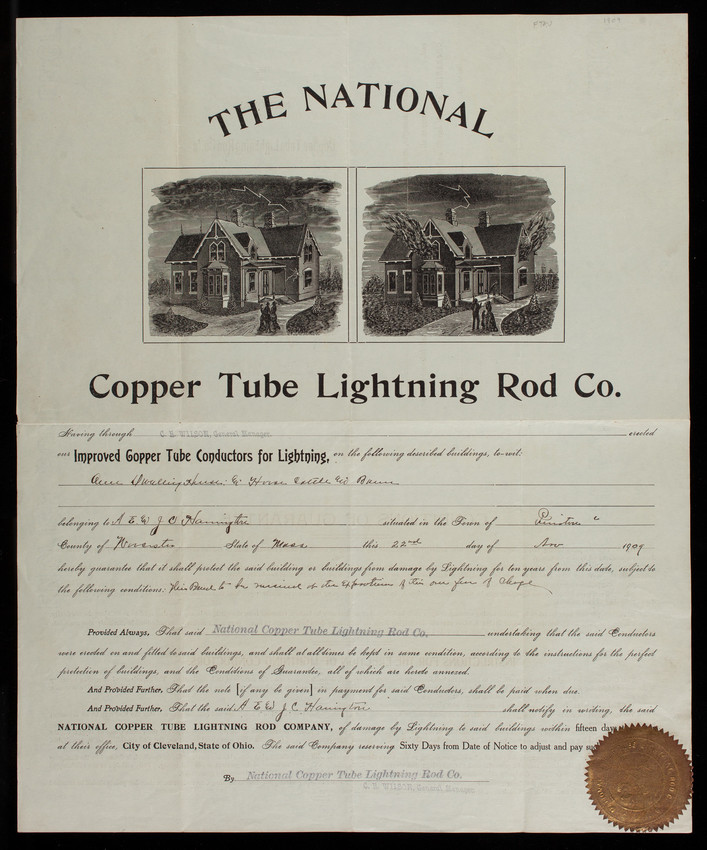 THE NATIONAL
Copper Tube Lightning Rod Co.
Having through C. B. WILSON, General Manager. erected
our Improved Copper Tube Conductors for Lightning, on the following described buildings, to-wit:
One Dwelling House & Horse Cattle &c Barn
belonging to A E & J C Harrington situated in the Town of
County of Worcester State of Mass this 22nd day of Nov 1909
hereby guarantee that it shall protect the said building or buildings from damage by Lightning for ten years from this date, subject to
the following conditions: This Bond to be renewed at the Expiration of free of Charge
Provided Always, That said National Copper Tube Lightning Rod Co. undertaking that the said Conductors
were erected on and fitted to said buildings, and shall at all times be kept in same condition, according to the instructions for the perfect
protection of buildings, and the Conditions of Guarantee, all of which are hereto annexed.
And Provided Further, That the note [if any be given] in payment for said Conductors, shall be paid when due.
And Provided Further, That the said A E & J C Harrington shall notify in writing, the said
NATIONAL COPPER TUBE LIGHTNING ROD COMPANY, of damage by Lightning to said buildings within fifteen days
at their office, City of Cleveland, State of Ohio. The said Company reserving Sixty Days from Date of Notice to adjust and pay
By National Copper Tube Lightning Rod Co.
C. B. WILSON, General Manager.